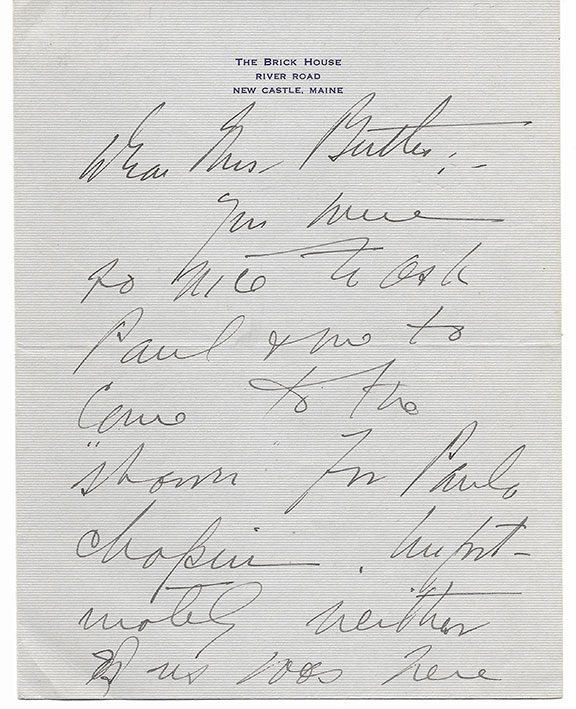 THE BRICK HOUSE
RIVER ROAD
NEW CASTLE, MAINE
Dear Mrs. Butler; -
You were
so nice to ask
Paul & me to
come to the
"shower" for Paula
Chopin. Unfort-
unately neither
of us was here